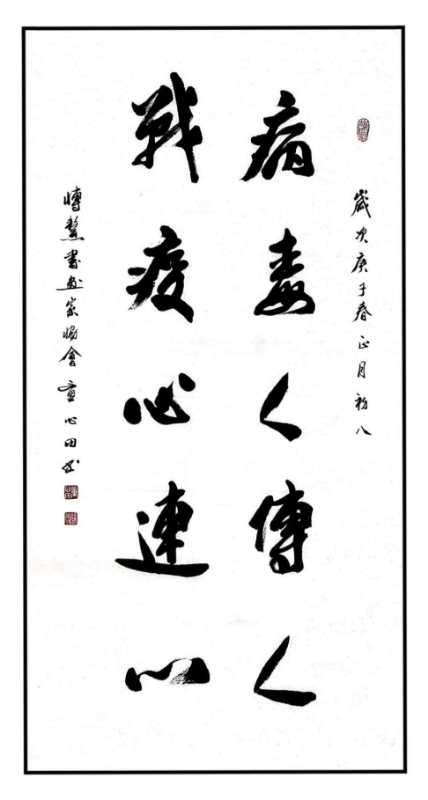 歲次庚子春正月初八
病毒人傳人
戰疫心連心
博鰲書畫家協會童心田書